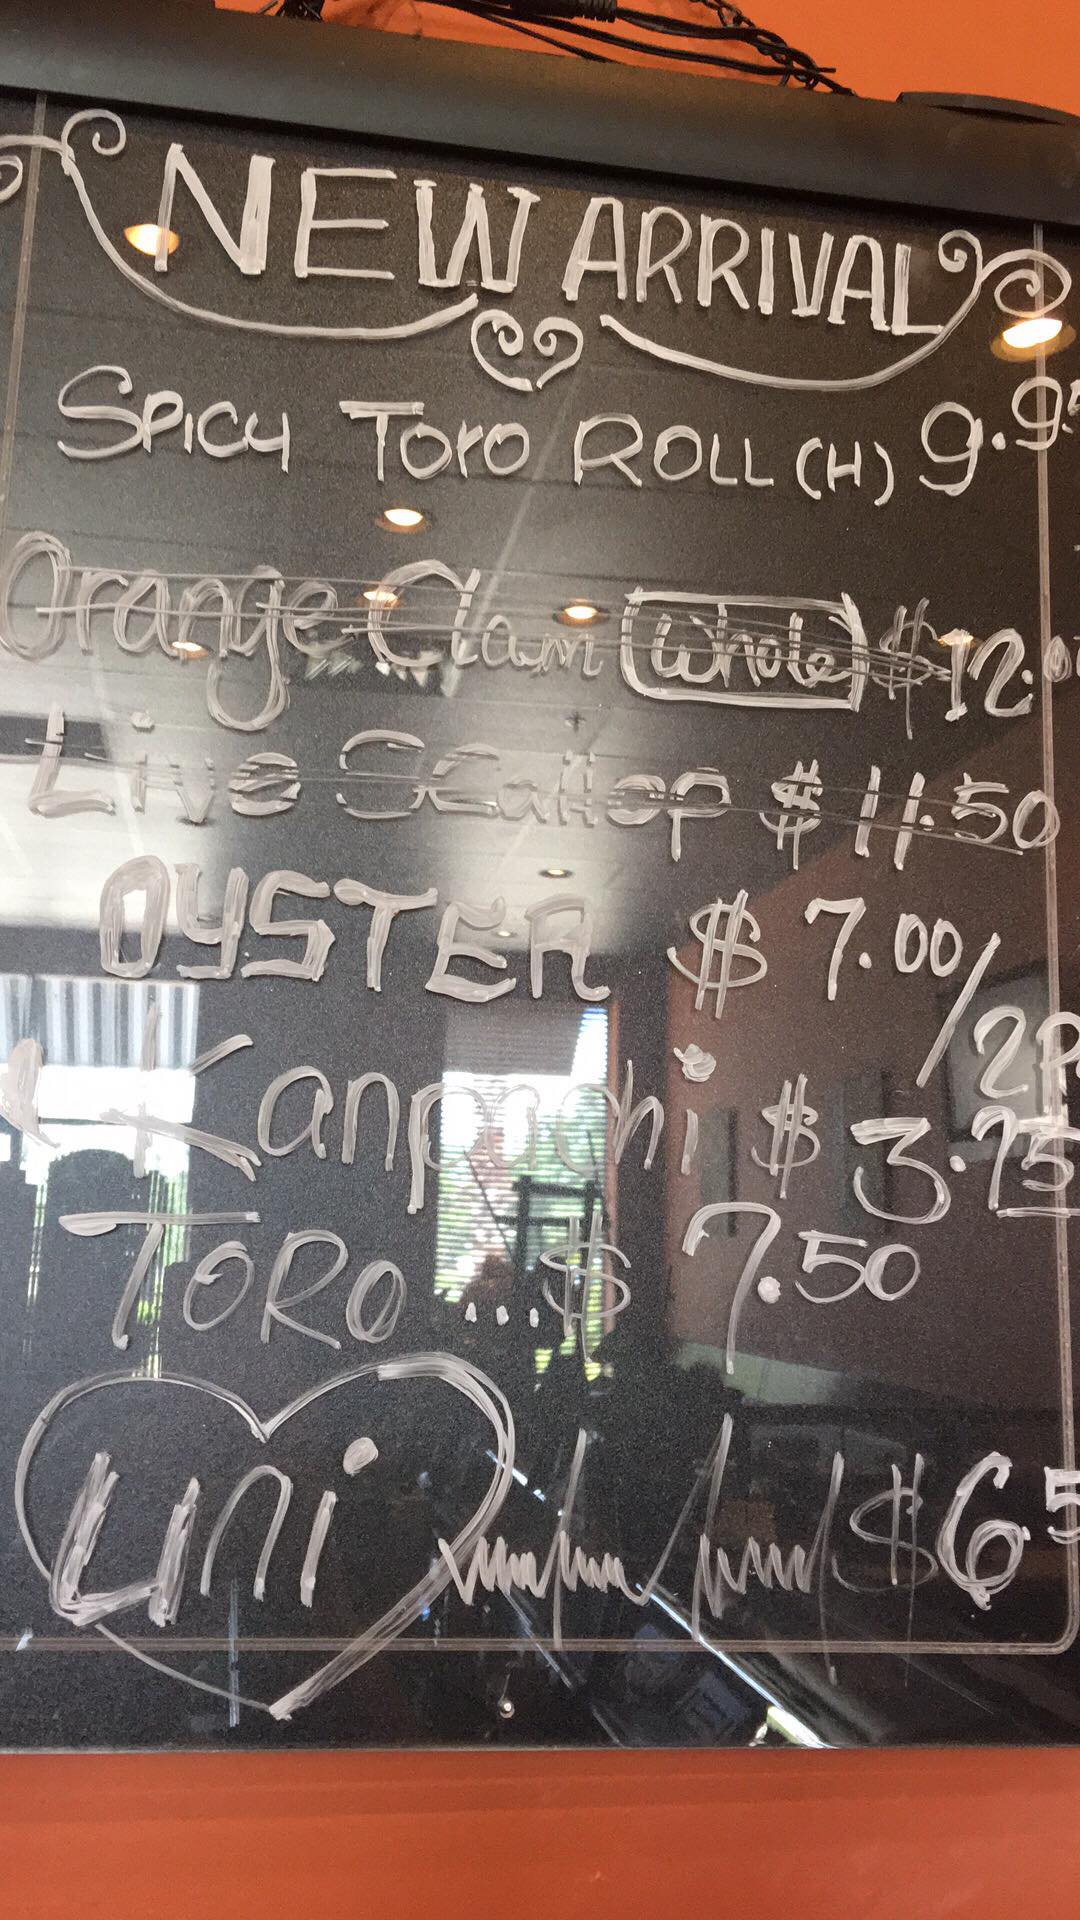 NEW ARRIVAL
SPICY TORO ROLL (H) 9.95
Orange Clam Whole $12.00
Live Scallop $11.50
OYSTER $7.00/
2P
Kanpachi $3.75
TORO ....$7.50
uni $6.5